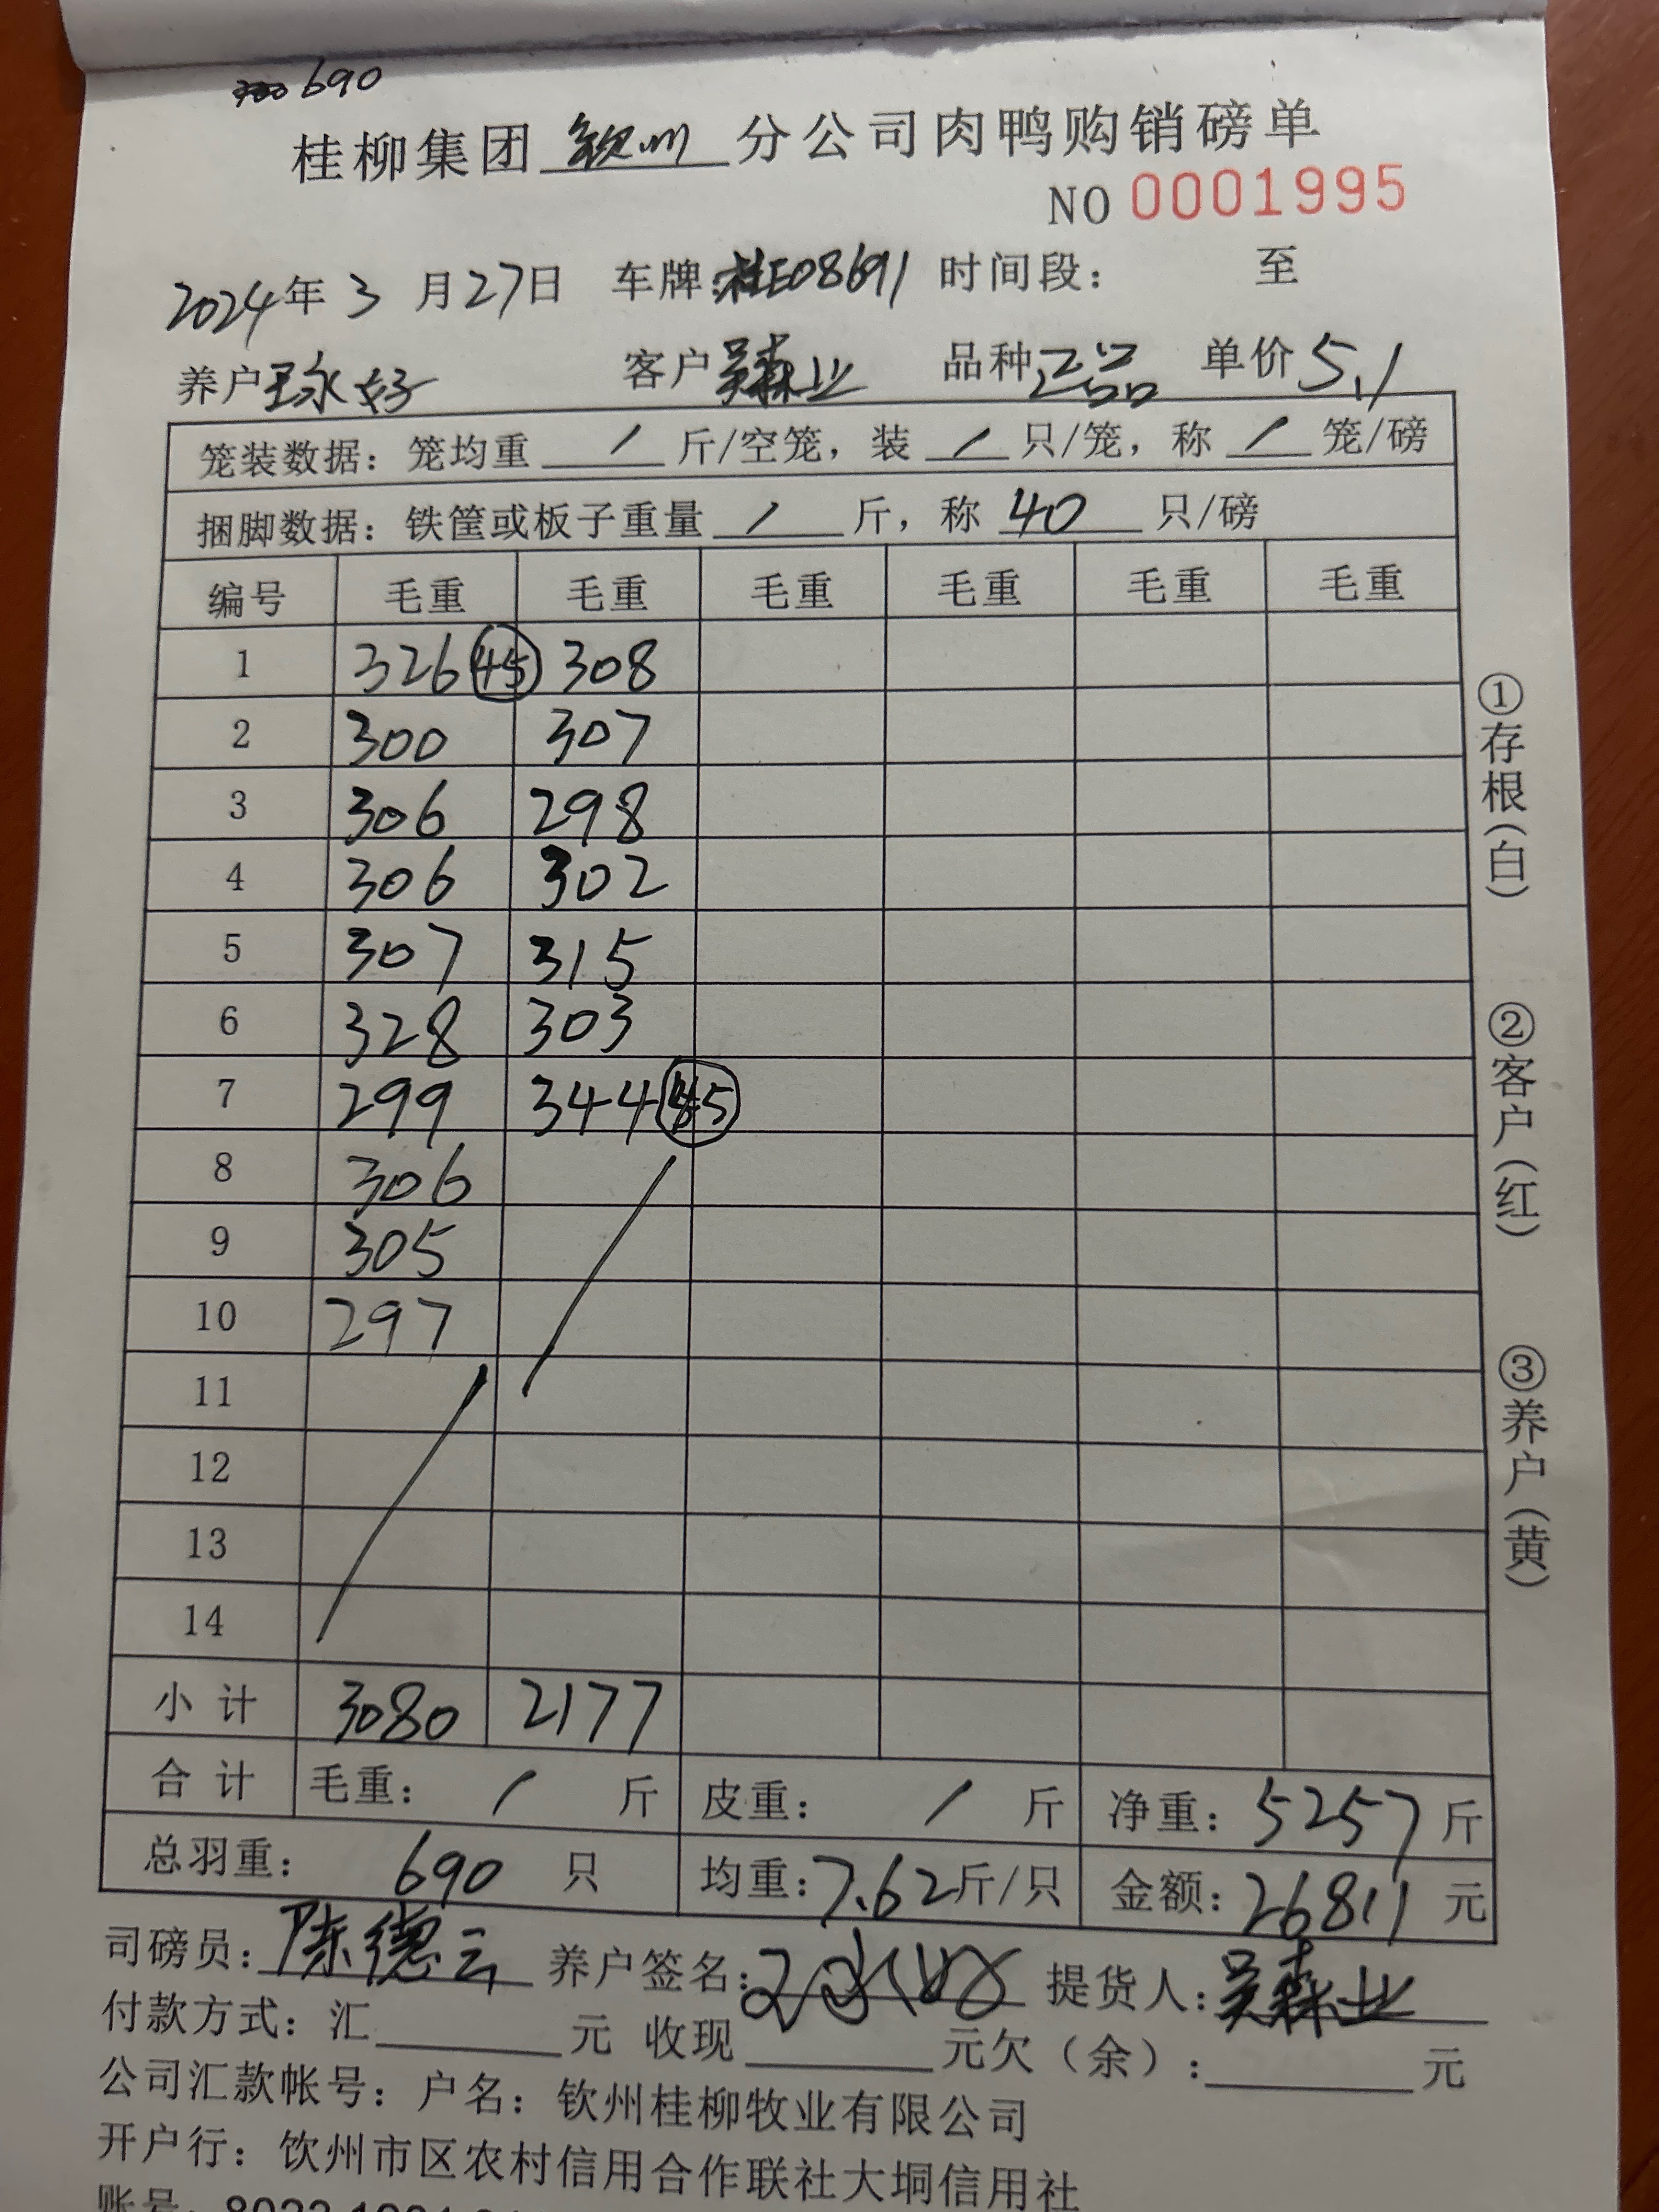 690
桂柳集团 钦州 分公司肉鸭购销磅单
NO 0001995
2024年 3 月27日 车牌:桂E08691 时间段: 至
养户 王永好 客户 吴森业 品种 正品 单价 5.1
笼装数据:笼均重 / 斤/空笼,装 / 只/笼,称 / 笼/磅
捆脚数据:铁筐或板子重量 / 斤,称 40 只/磅
编号 毛重 毛重 毛重 毛重 毛重 毛重
1 326 45 308
2 300 307
3 306 298
4 306 302
5 307 315
6 328 303
7 299 344 45
8 306
9 305
10 297
11
12
13
14
小计 3080 2177
合计 毛重: / 斤 皮重: / 斤 净重: 5257 斤
总羽重: 690 只 均重:7.62斤/只 金额:26811 元
司磅员:陈德云 养户签名: 提货人:吴森业
付款方式:汇 元 收现 元欠(余): 元
公司汇款帐号:户名:钦州桂柳牧业有限公司
开户行:钦州市区农村信用合作联社大垌信用社
账号:
①存根(白)
②客户(红)
③养户(黄)